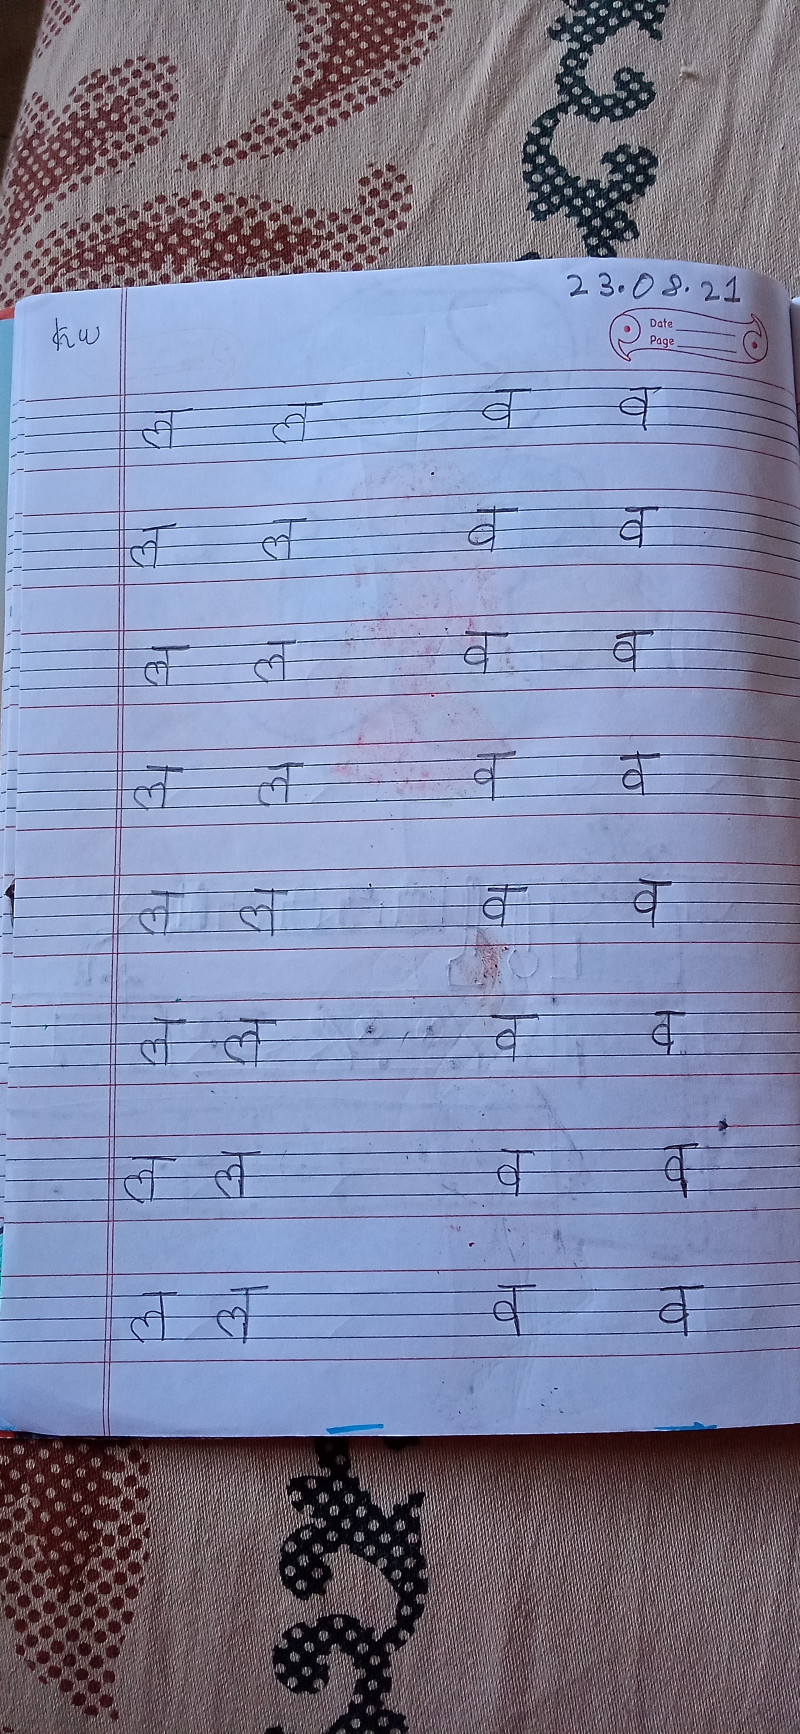 23.08.21
Date
Page
ल ल व व
ल ल व व
ल ल व व
ल ल व व
ल ल व व
ल ल व व
ल ल व व
ल ल व व